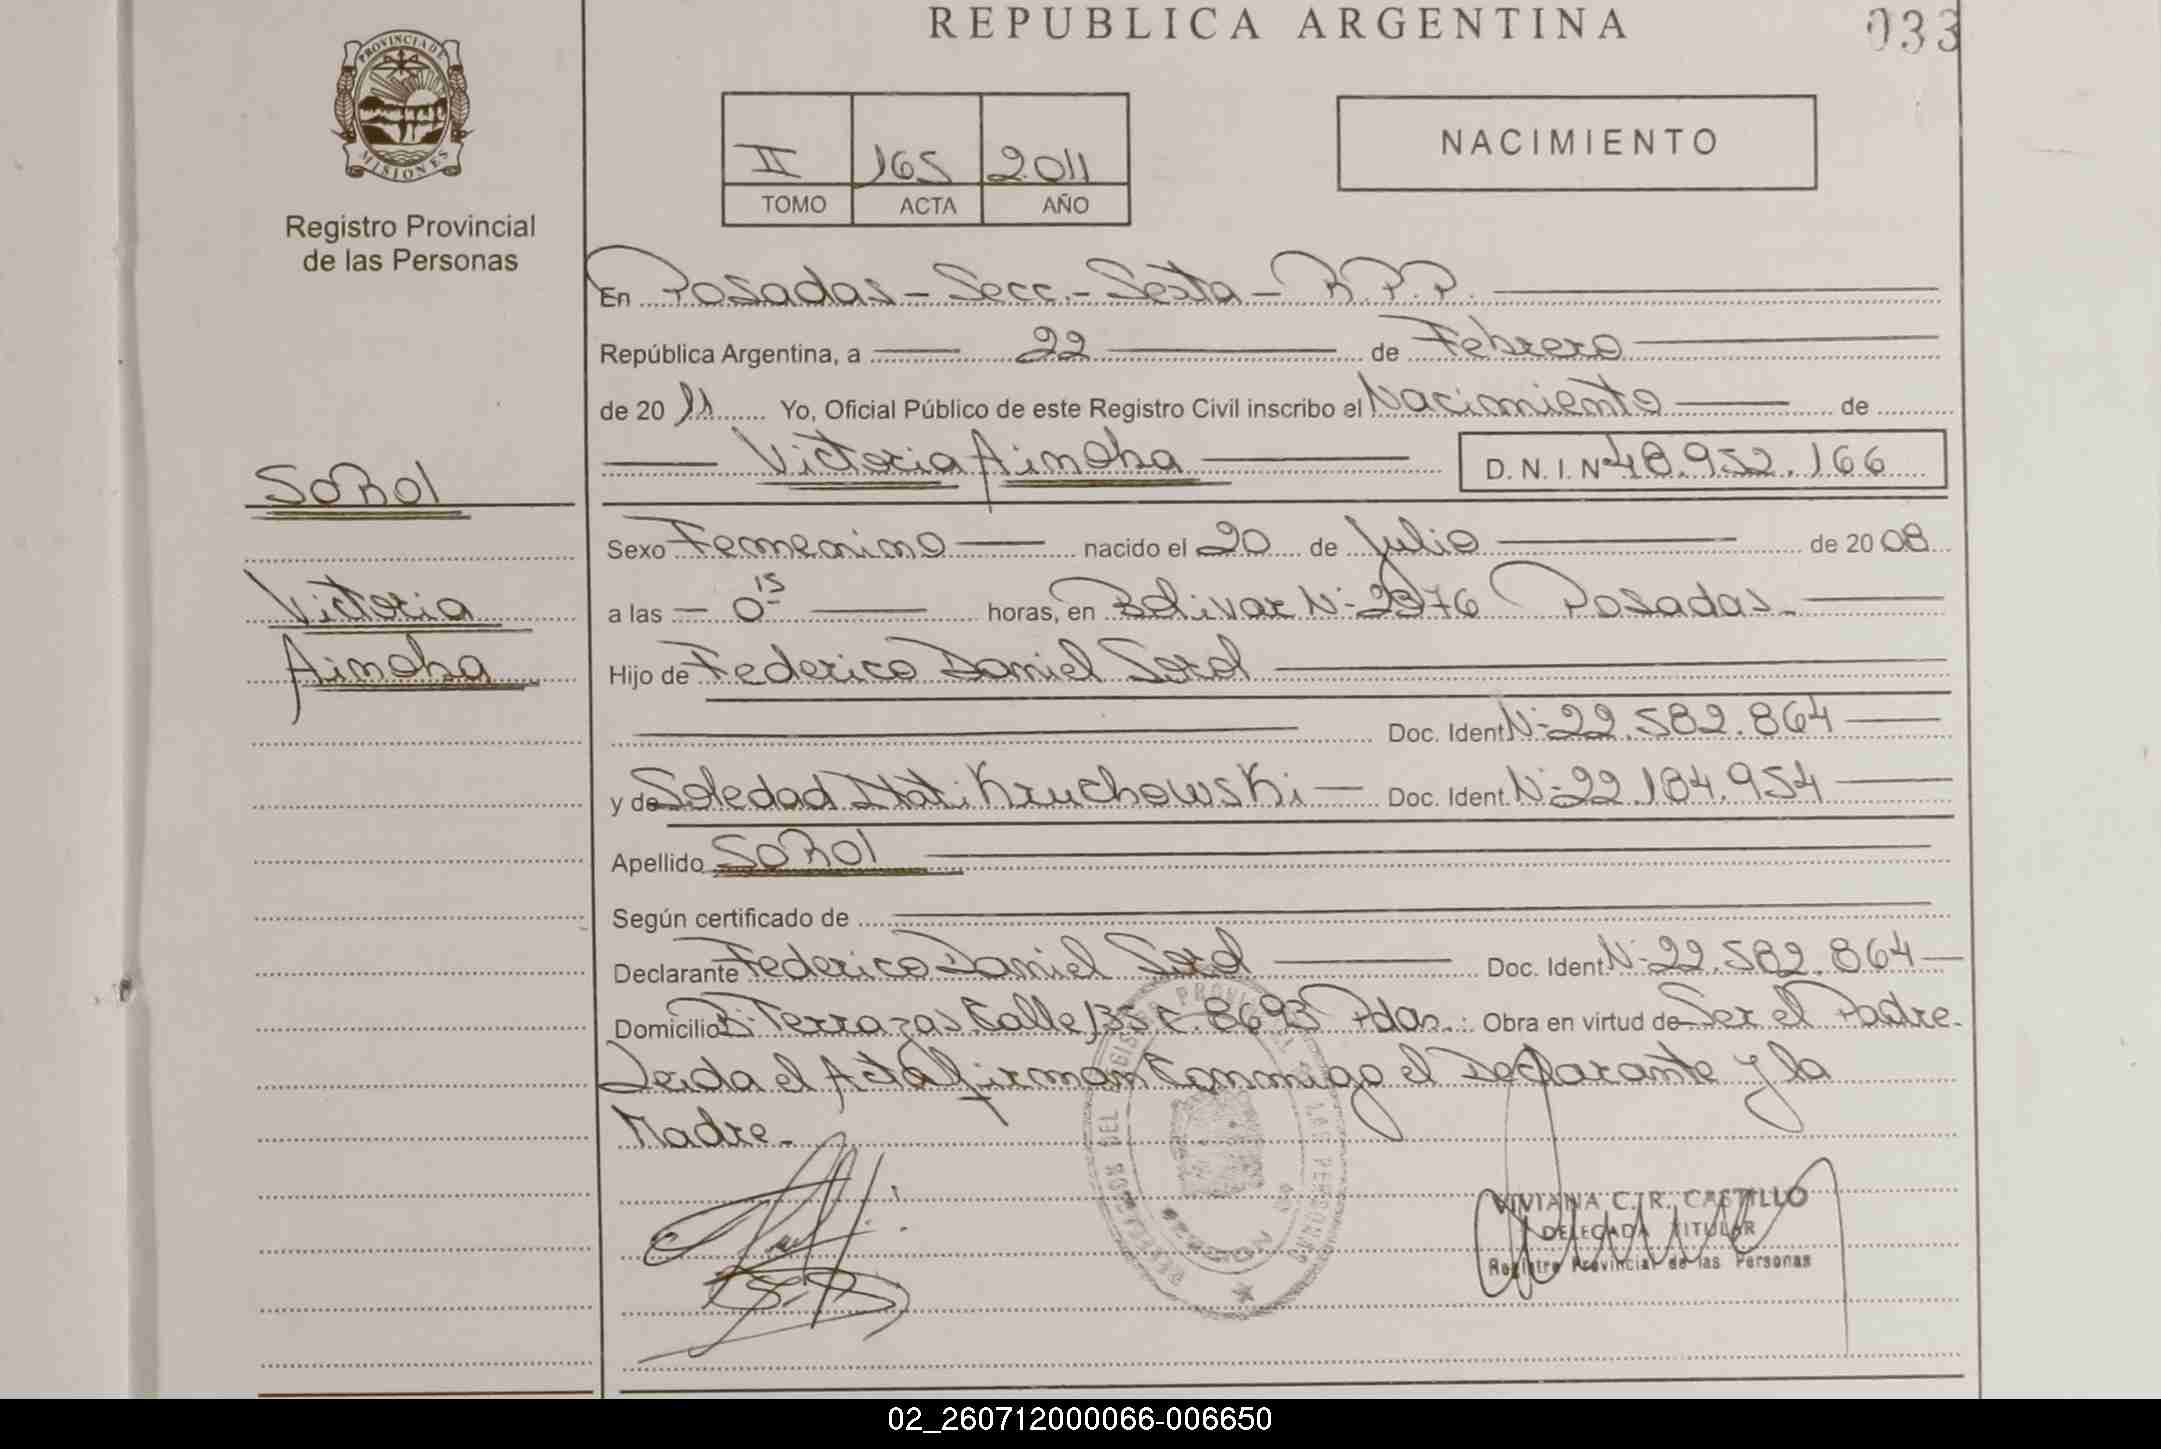 REPUBLICA ARGENTINA
033
PROVINCIA DE MISIONES
Registro Provincial
de las Personas
II 165 2011
TOMO ACTA AÑO
NACIMIENTO
En Posadas - Secc. - Sexta - R.P.P.
República Argentina, a 22 de Febrero
de 2011 Yo, Oficial Público de este Registro Civil inscribo el Nacimiento de
Victoria Ainoha D. N. I. Nº 48.952.166
SoRol
Sexo Femenino nacido el 20 de Julio de 2008
Victoria
a las 0 15 horas, en Bolivar Nº 2376 Posadas
Ainoha
Hijo de Federico Daniel Sorol
Doc. Ident Nº 22.582.864
y de Soledad Itatí Kruchowski Doc. Ident. Nº 22.184.954
Apellido SoRol
Según certificado de
Declarante Federico Daniel Sorol Doc. Ident. Nº 22.582.864
Domicilio Bº Terrazas Calle 135 c. 8693 Pdas. Obra en virtud de Ser el Padre.
Leida el Acta firman Conmigo el Declarante y la
Madre.
VIVIANA C. R. CASTILLO
DELEGADA TITULAR
Registro Provincial de las Personas
02_260712000066-006650